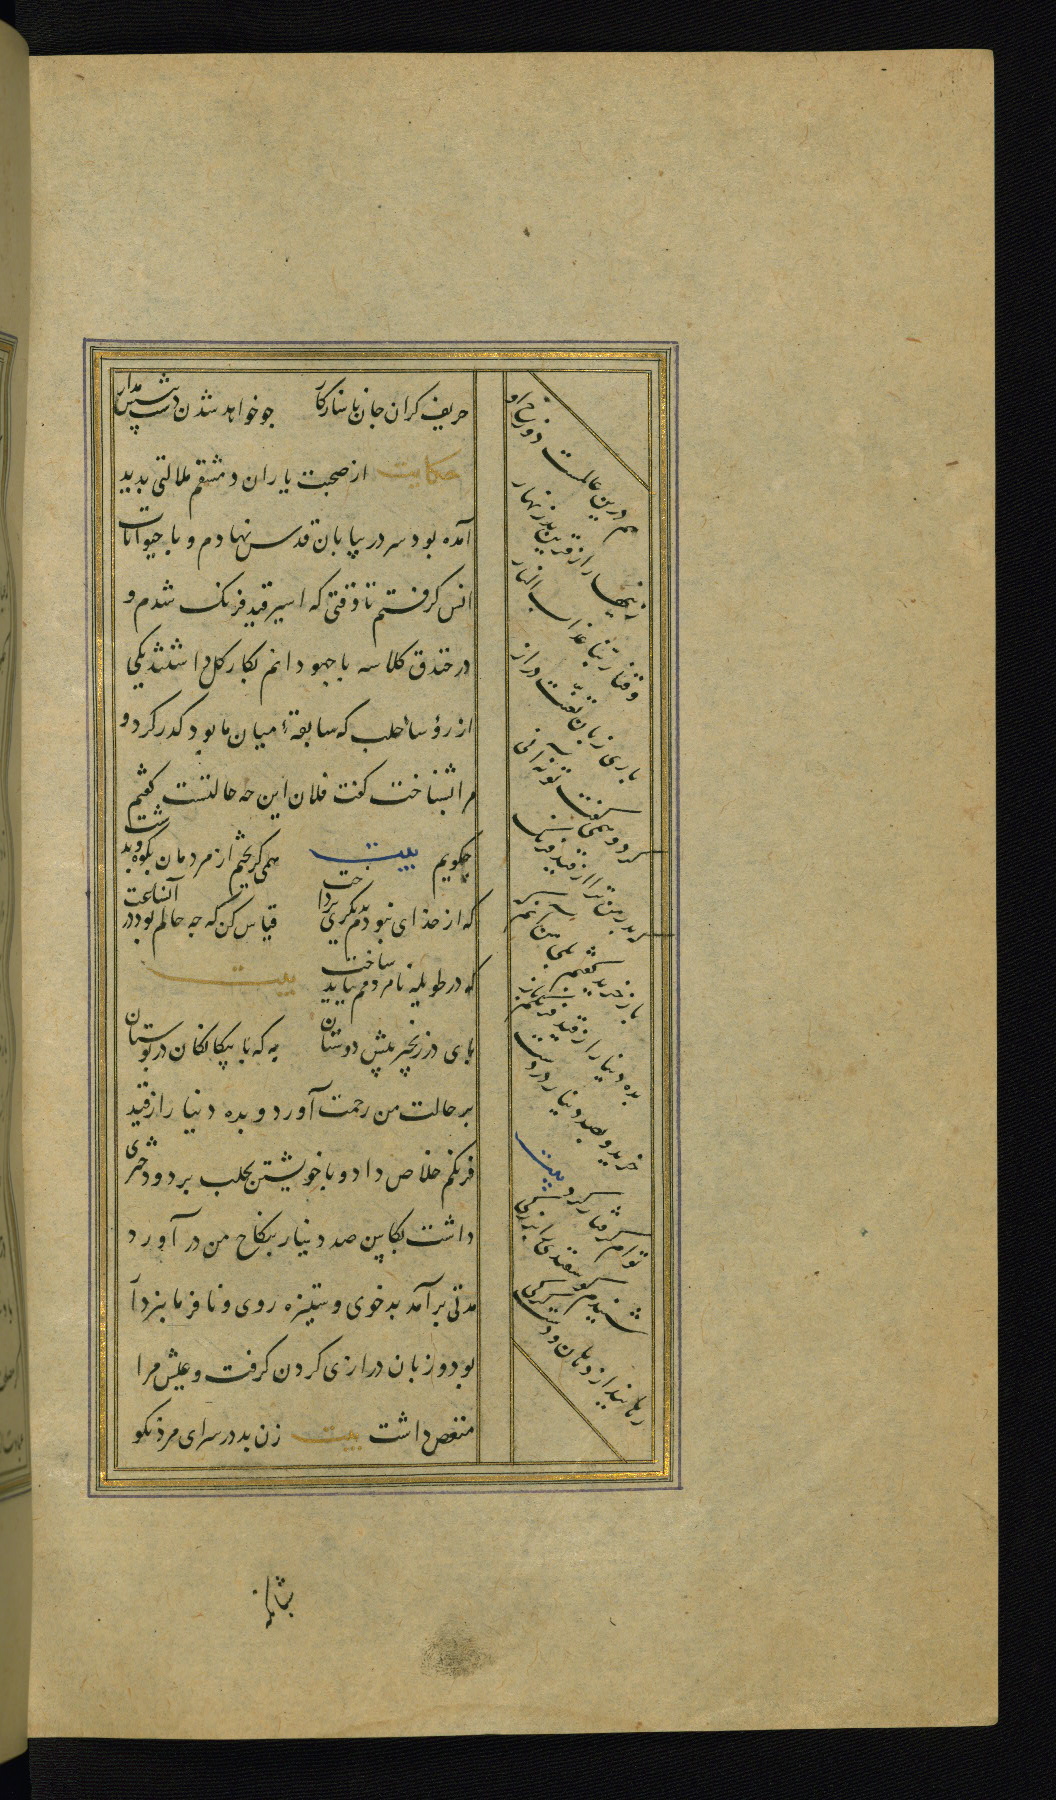 حریف گران جان ناسازگار چو خواهد شدن دست پیش مدار
حکایت از صحبت یاران دمشقم ملالتی پدید
آمده بود سر در بیابان قدس نهادم و با حیوانات
انس گرفتم تا وقتی که اسیر قید فرنک شدم و
در خندق کلاسه با جهودانم بکار کل داشتند یکی
از رؤسا حلب که سابقهٔ میان ما بود گذر کرد و
مرا بشناخت گفت فلان این چه حالتست گفتم
چگویم بیت همی گریختم از مردمان بکوه و بدشت
که از خدای نبودم بدیگری پرداخت قیاس کن که چه حالم بود در آنساعت
که در طویلهٔ نامردمم بباید ساخت بیت
پای در زنجیر پیش دوستان به که با بیکانکان در بوستان
بر حالت من رحمت آورد و بده دینار از قید
فرنکم خلاص داد و با خویشتن بحلب برد و دختری
داشت بکابین صد دینار بنکاح من در آورد
مدتی برآمد بدخوی و ستیزه روی و نافرمانبردار
بود و زبان درازی کردن گرفت و عیش مرا
منغص داشت بیت زن بد در سرای مرد نکو
هم درین عالمست دوزخ او
زینهار از قرین بد زنهار
وقنا ربنا عذاب النار
باری زبان تعنت دراز
کرد و همی گفت تو نه آنی
که پدر من ترا از قید فرنک
باز خرید گفتم بلی من آنم که
بده دینار از قید فرنکم باز
خرید و بصد دینار در دست
توام گرفتار کرد بیت
شنیدم گوسفندی را بزرگی
رهانید از دهان و دست گرگی